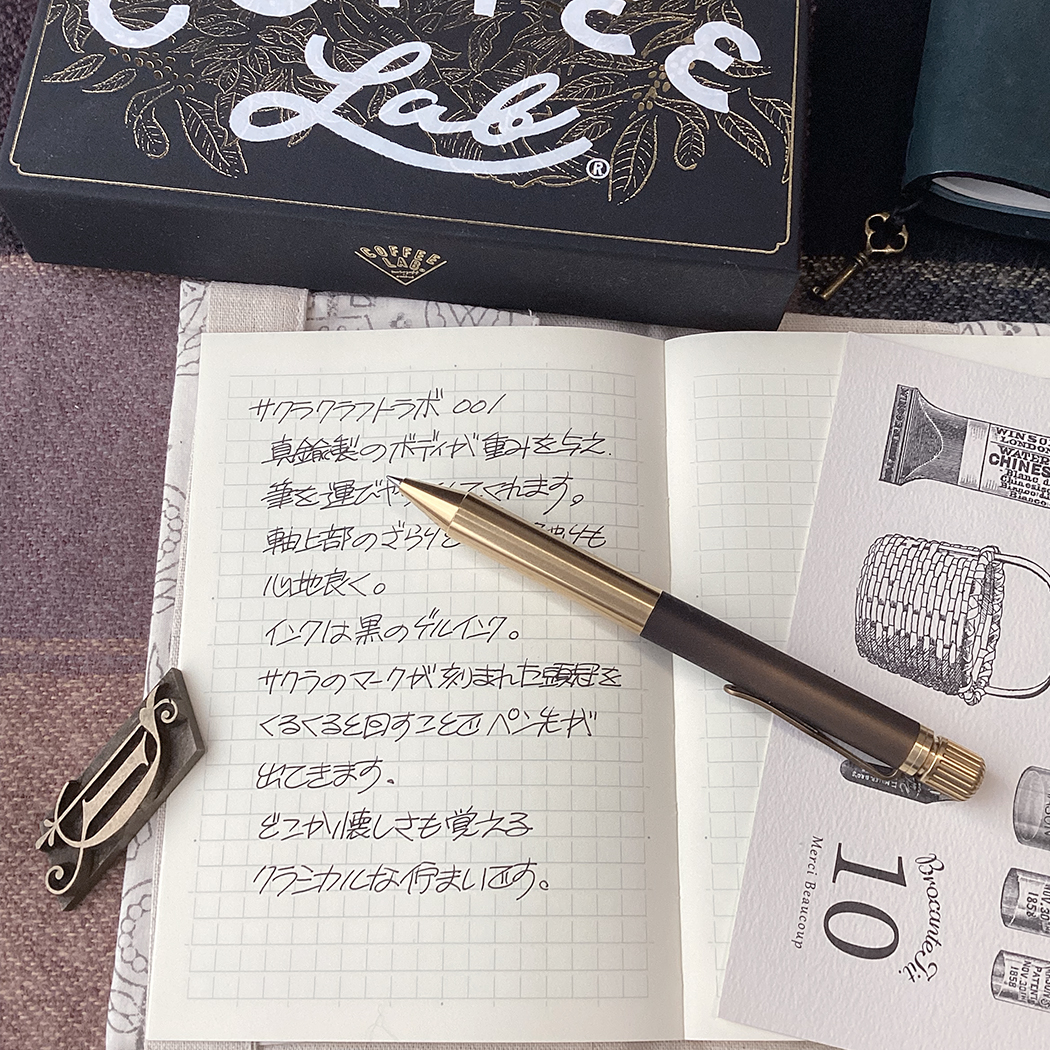 Lab®
COFFEE
LAB
サクラクラフトラボ 001
真鍮製のボディが重みを与え、
筆を運びや くれます。
軸上部のざらり も
心地良く。
インクは黒のゲルインク。
サクラのマークが刻まれた頭冠を
くるくると回すことでペン先が
出てきます。
どこか懐しさも覚える
クラシカルな佇まいです。
WINSO
LONDON
WATER
CHINES
Blanc d
Bianco d
Brocante Jit
10
Merci Beaucoup
NOV. 30TH
1858
PATENT
NOV. 30TH
1858